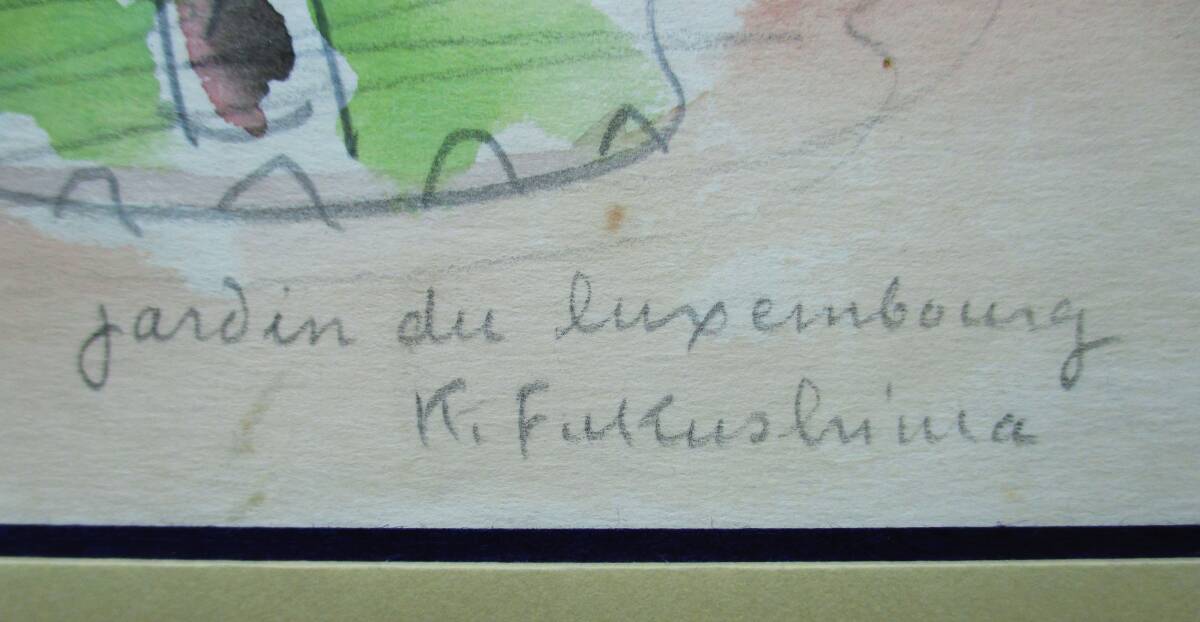 jardin du luxembourg
K. Fukushima